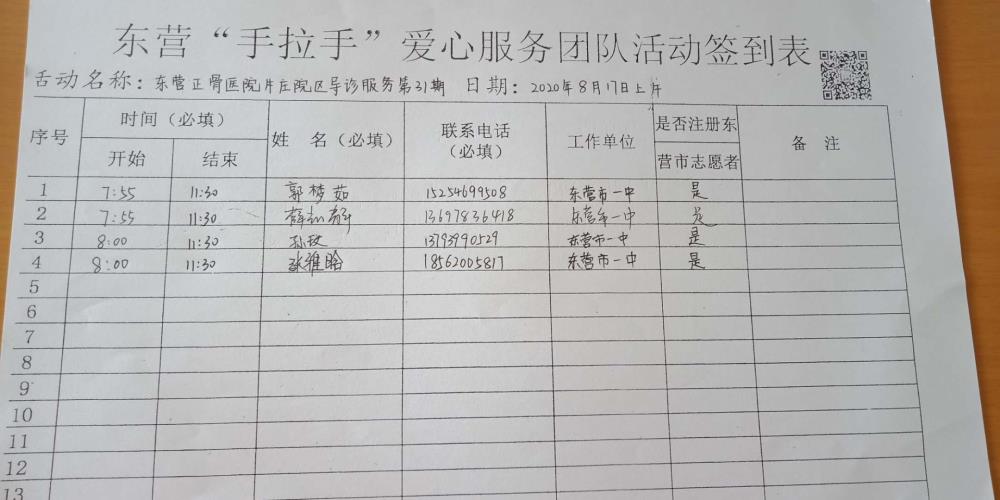 东营“手拉手”爱心服务团队活动签到表
活动名称：东营正骨医院片庄院区导诊服务第31期 日期：2020年8月17日上午
序号 时间（必填） 姓 名（必填） 联系电话（必填） 工作单位 是否注册东营市志愿者 备 注
开始 结束
1 7:55 11:30 郭梦茹 15254699508 东营市一中 是
2 7:55 11:30 薛 13697836418 东营市一中 是
3 8:00 11:30 孙玫 13793990529 东营市一中 是
4 8:00 11:30 张雅晗 18562005817 东营市一中 是
5
6
7
8
9
10
11
12
13